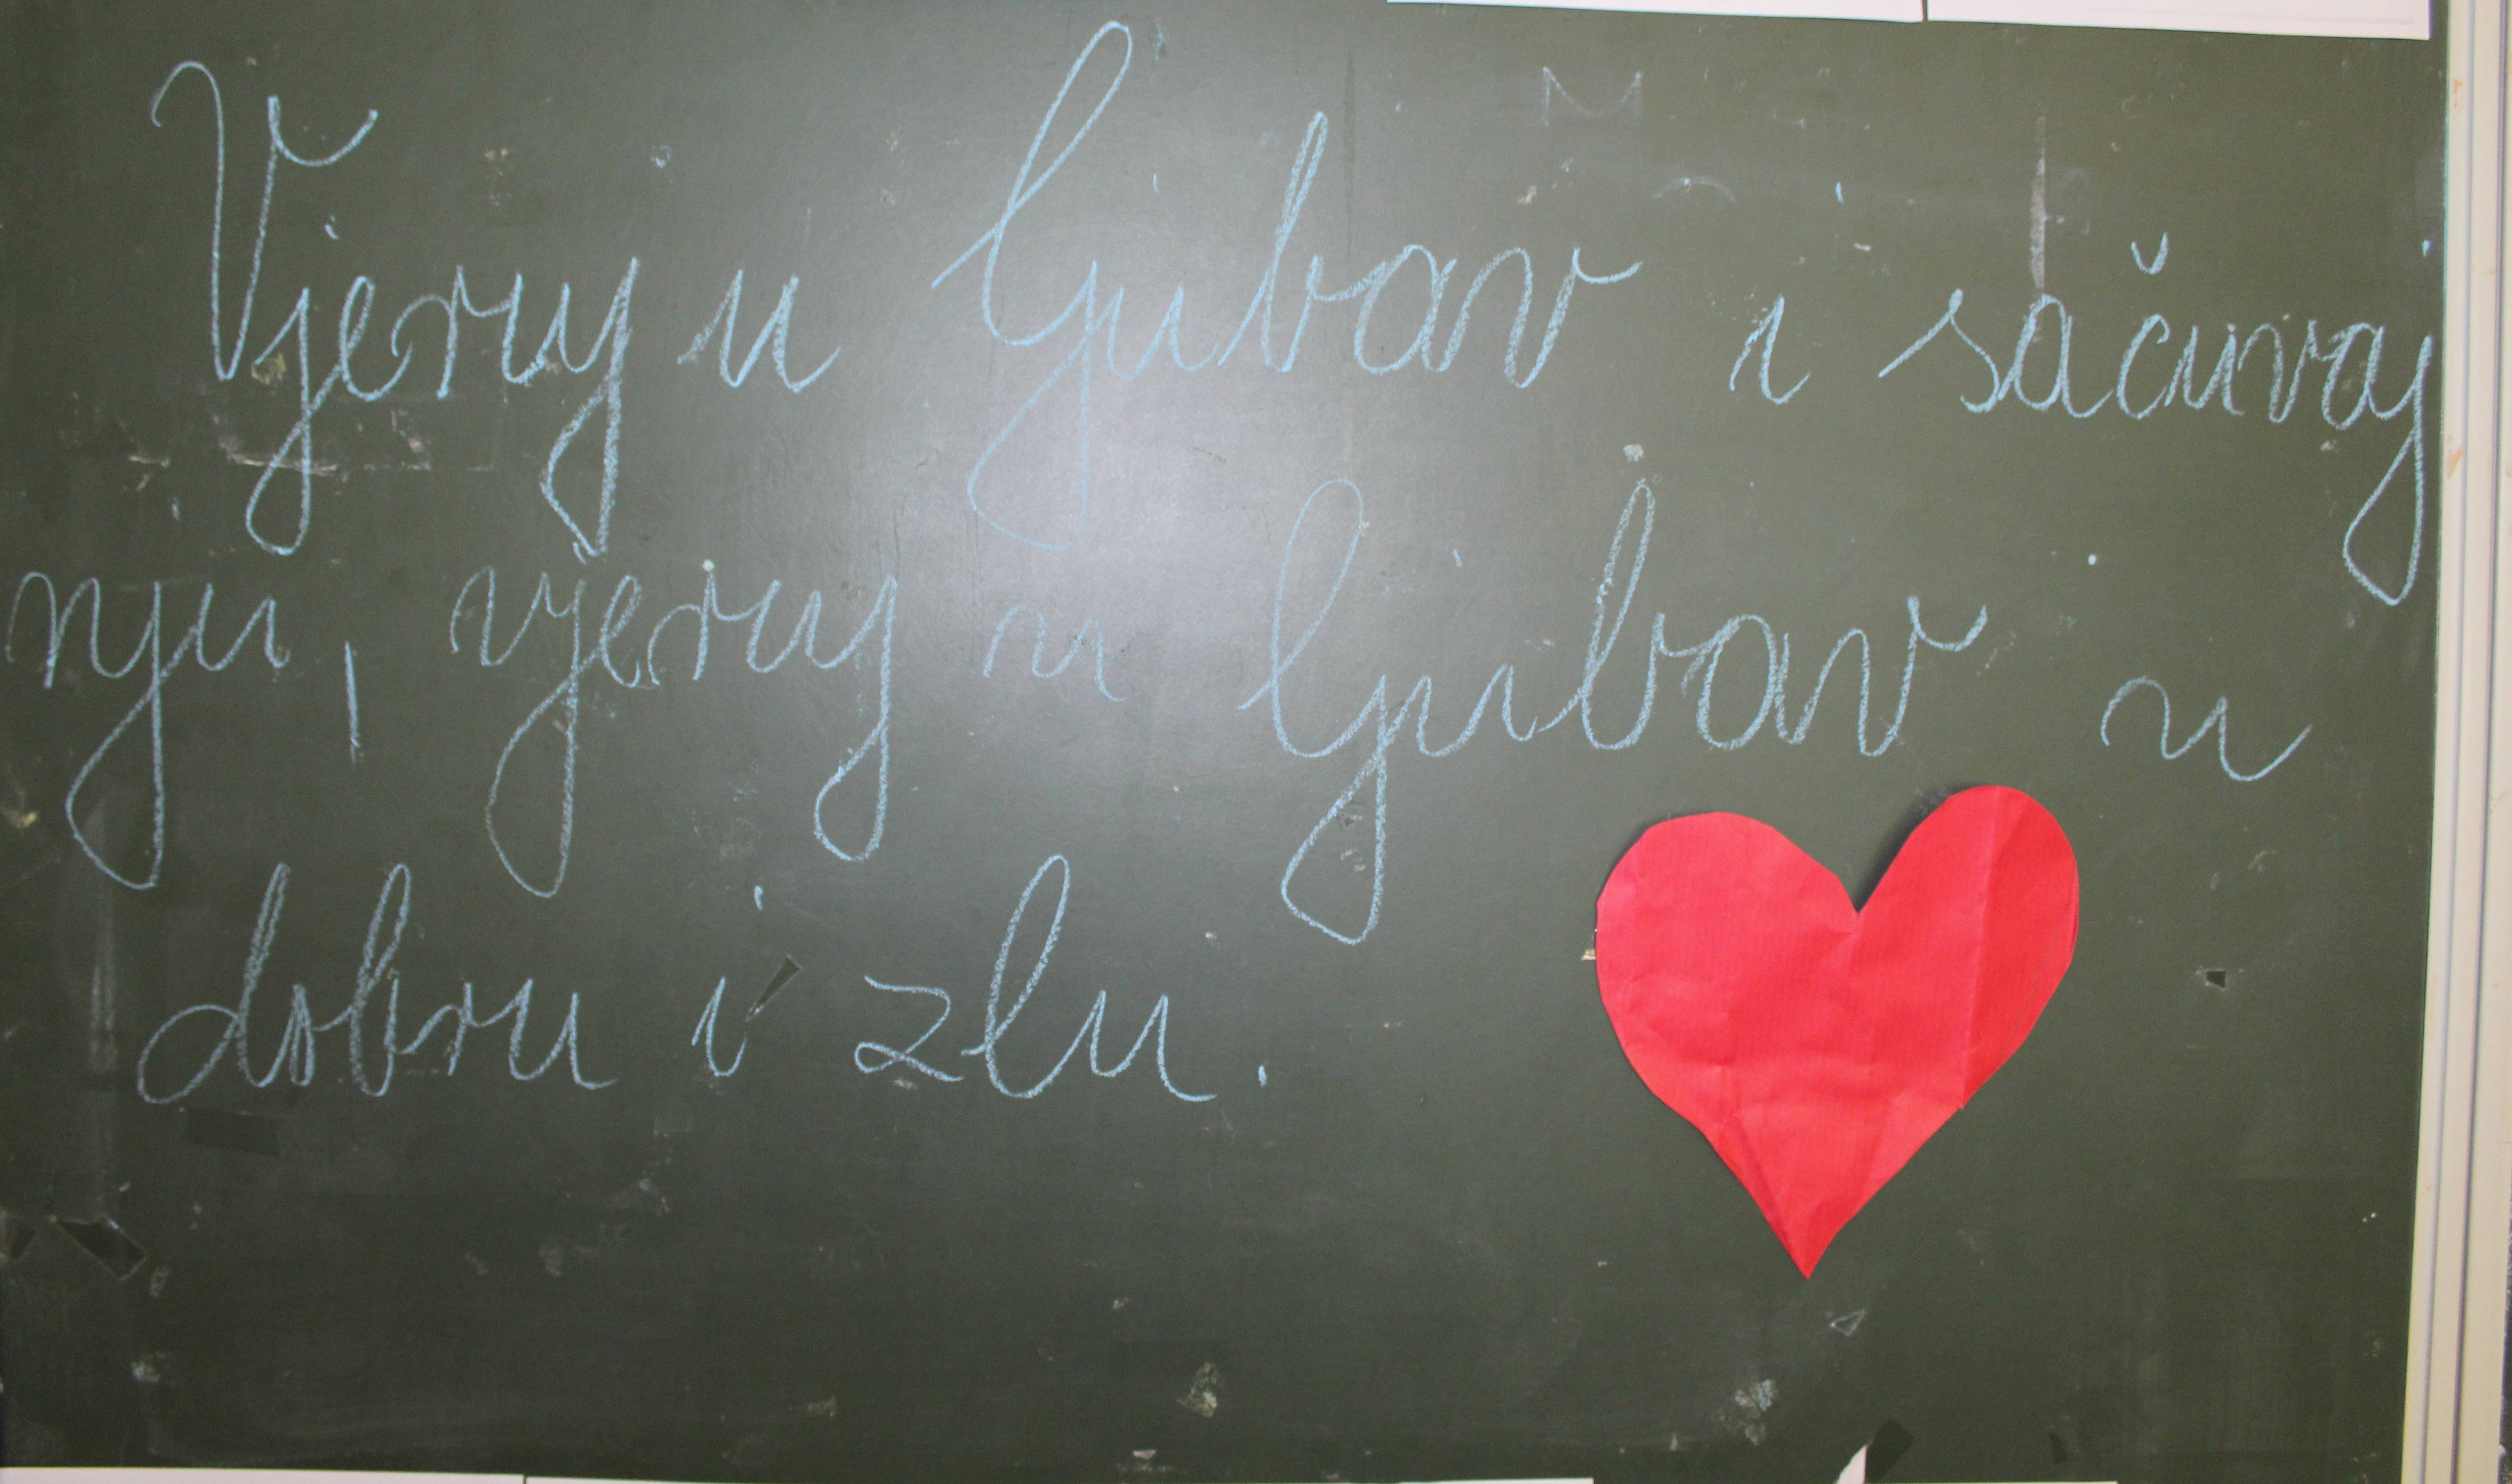 Vjeruj u ljubav i sačuvaj
nju, vjeruj u ljubav u
dobru i zlu.